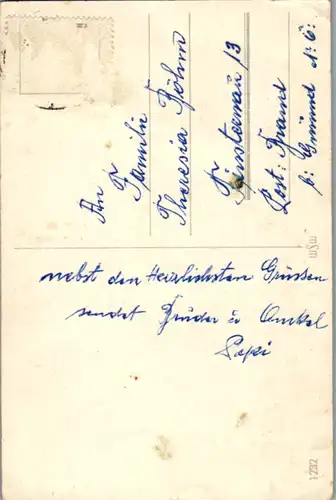 An
Familie
Theresia Böhm
Finsternau 13
Post: Brand
b: Gmünd N.Ö:
WSW
nebst den Herzlichsten Grüssen
sendet Bruder u Onckel
Pepi
1282